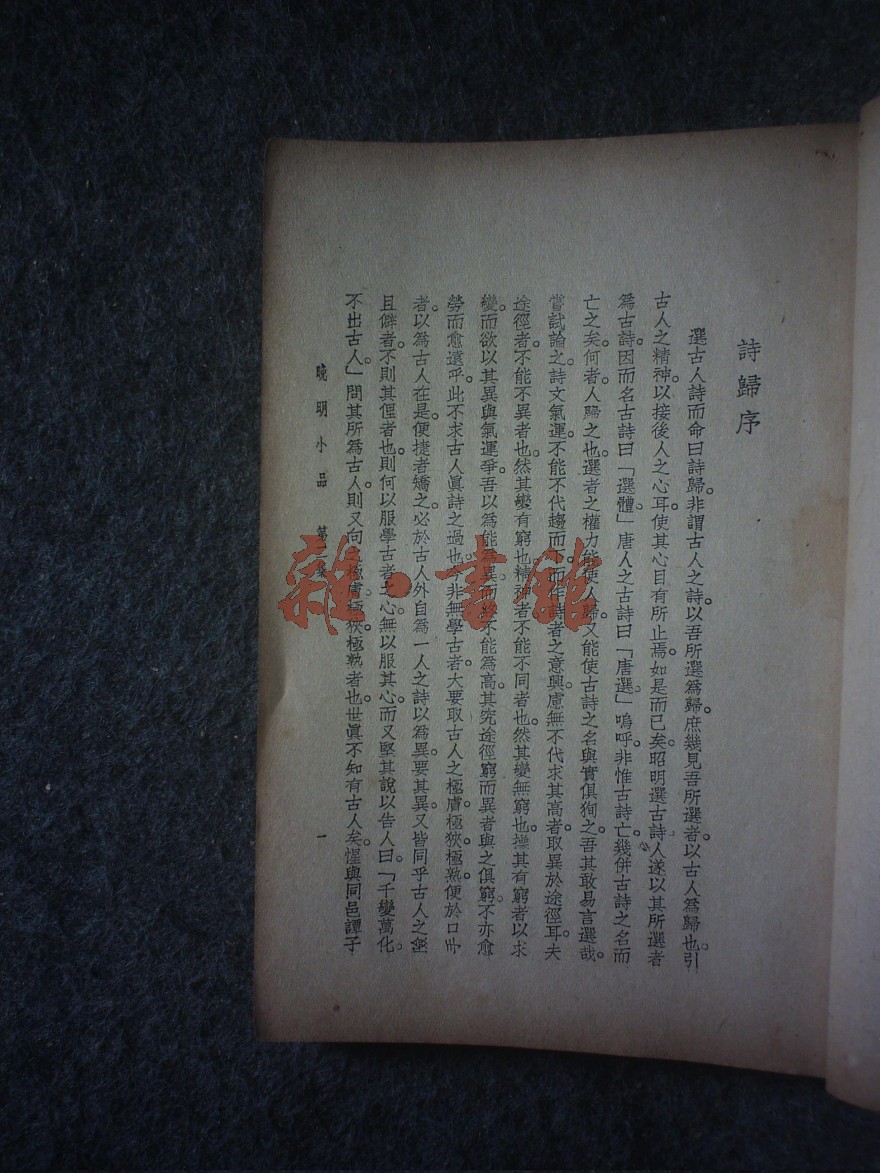 詩歸序
選古人詩而命曰詩歸。非謂古人之詩。以吾所選爲歸。庶幾見吾所選者。以古人爲歸也。引
古人之精神。以接後人之心耳。使其心目有所止焉。如是而已矣。昭明選古詩。人遂以其所選者
爲古詩。因而名古詩曰「選體」唐人之古詩曰「唐選」嗚呼。非惟古詩亡。幾併古詩之名而
亡之矣。何者。人歸之也。選者之權力。能使人歸。又能使古詩之名與實俱狥之。吾其敢易言選哉。
嘗試論之。詩文氣運。不能不代趨而下。而作詩者之意興。慮無不代求其高者。取異於途徑耳。夫
途徑者。不能不異者也。然其變有窮也。精神者。不能不同者也。然其變無窮也。操其有窮者以求
變。而欲以其異與氣運爭。吾以爲能爲異。而終不能爲高。其究途徑窮。而異者與之俱窮。不亦愈
勞而愈遠乎。此不求古人眞詩之過也。今非無學古者。大要取古人之極膚。極狹。極熟。便於口
者。以爲古人在是。便捷者矯之。必於古人外。自爲一人之詩以爲異。要其異。又皆同乎古人之
且僻者。不則其俚者也。則何以服學古者之心。無以服其心。而又堅其說以告人曰。「千變萬化。
不出古人」問其所爲古人。則又向之極膚。極狹。極熟者也。世眞不知有古人矣。惺與同邑譚子
晚明小品 第 一
雜·書館